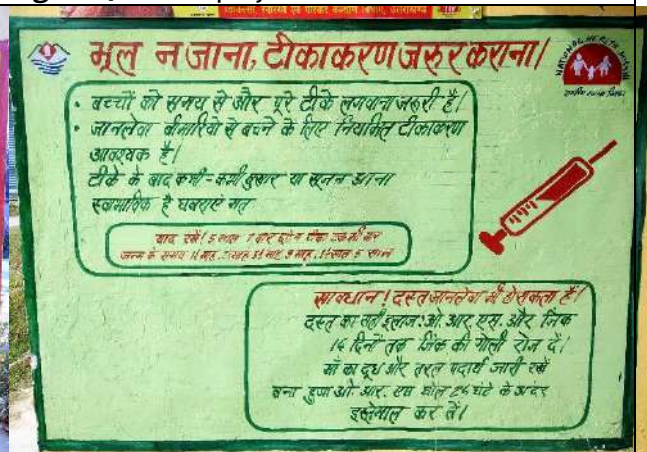 चिकित्सा, स्वास्थ्य एवं परिवार कल्याण विभाग, उत्तराखण्ड
भूल न जाना, टीकाकरण जरुर कराना।
NATIONAL HEALTH MISSION
• बच्चों को समय से और पूरे टीके लगवाना जरुरी है।
• जानलेवा बीमारियो से बचने के लिए नियमित टीकाकरण
आवश्यक है।
टीके के बाद कभी-कभी बुखार या सूजन आना
स्वभाविक है घबराऐ मत
याद रखें! 5 साल 7 बार
जन्म के समय 1½ माह, 2½ माह 3½ माह, 9 माह, 1½ साल 5 साल
सावधान! दस्त जानलेवा भी हो सकता है।
दस्त का सही इलाज! ओ.आर.एस. और जिंक
14 दिनों तक जिंक की गोली रोज दें।
माँ का दूध और तरल पदार्थ जारी रखें
बना हुआ ओ.आर.एस घोल 24 घंटे के अंदर
इस्तेमाल कर लें।